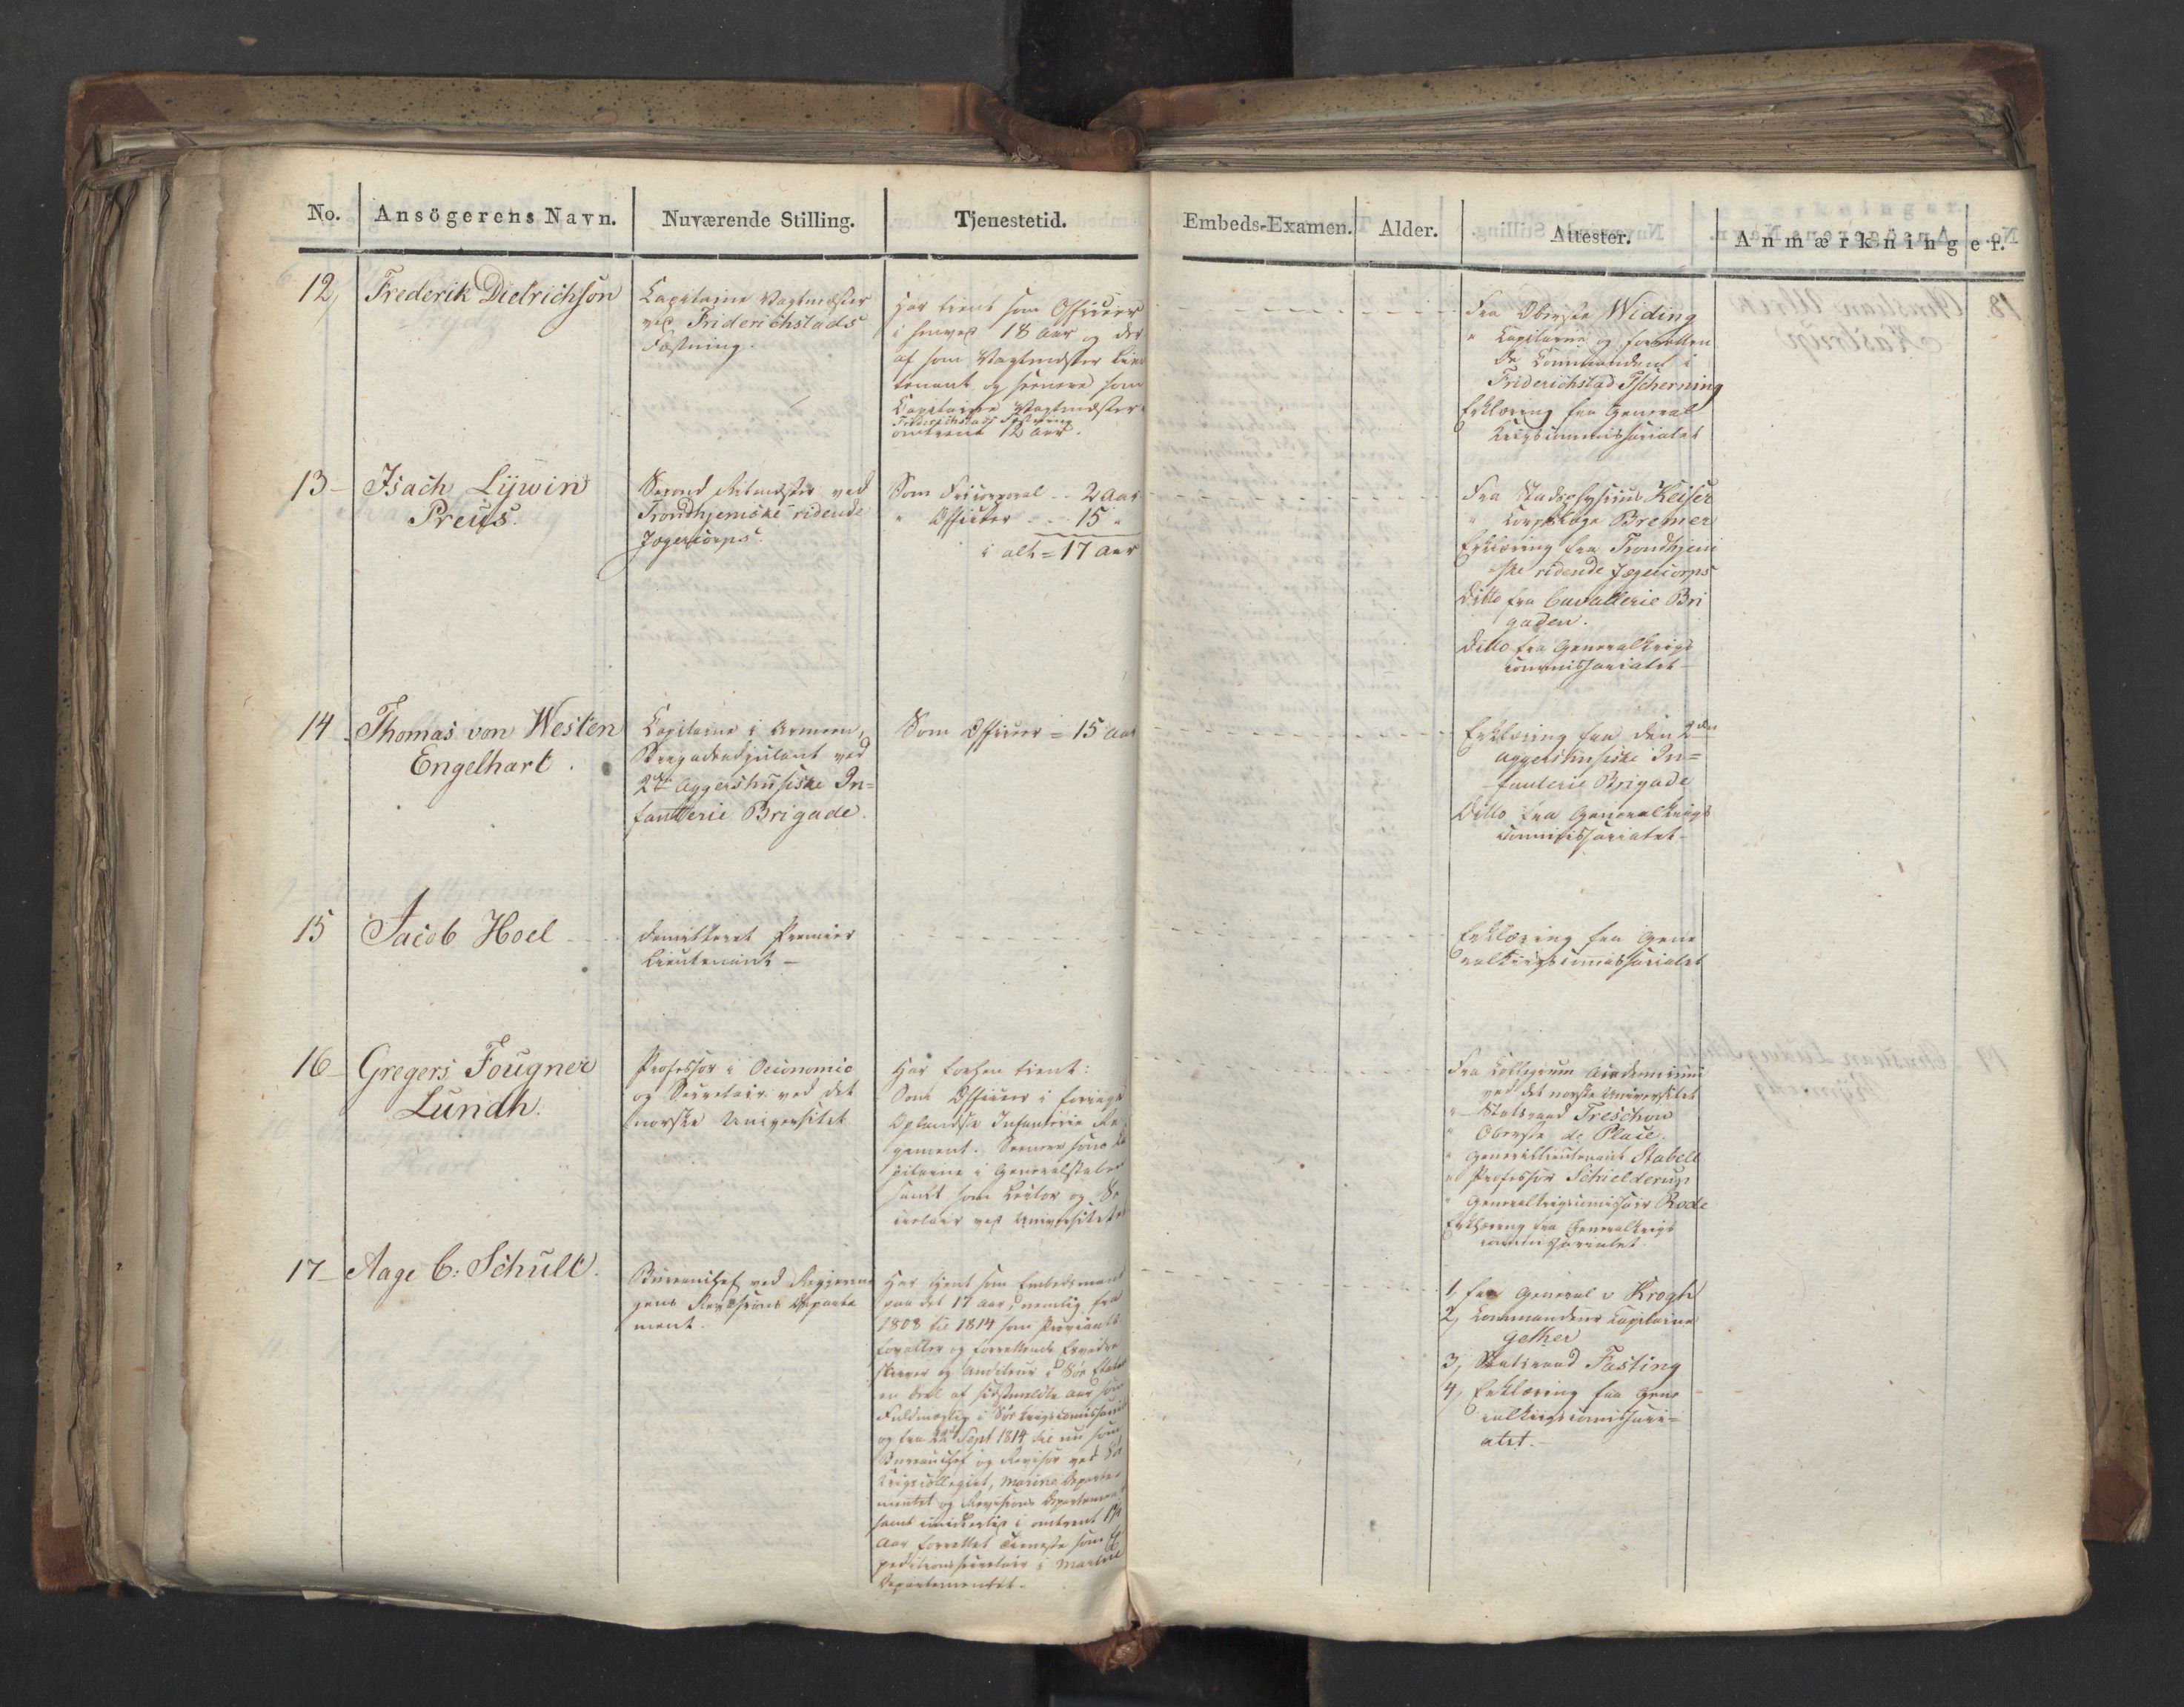 No. Ansögerens Navn. Nuværende Stilling. Tjenestetid. Embeds-Examen. Alder. Attester. Anmærkninger.
12, Frederik Dietrichson
Capitaine Vagtmester
ved Friderichstads
Fæstning.
Har tient som Officeer
i henved 18 Aar og der
af som Vagtmester Lieu
tenant og senere som
Capitaine Vagtmester
Friderichstads Fæstning
omtrent 12 Aar.
Fra Oberste Widing
" Capitaine og forretten
de Commandant i
Friderichstad Tscherning
Erklæring fra General
Krigscommissariatet
13 - Isach Lywin
Preus.
Second Ritmester ved
Trondhjemske ridende
Jægercorps.
Som Fricorporal - - 2 Aar
" Officeer - - - 15 "
i alt = 17 Aar
Fra Stadsphysicus Keiser
" Corpslæge Bremer
Erklæring fra Trondhjem
ske ridende Jægercorps
Ditto fra Cavallerie Bri
gaden.
Ditto fra Generalkrigs
commissariatet
14 Thomas von Westen
Engelhart.
Capitaine i Armeen,
Brigadeadjutant ved
2den Aggershusiske In=
fanterie Brigade.
Som Officeer = 15 Aar
Erklæring fra den 2den
Aggershusiske In=
fanterie Brigade
Ditto fra Generalkrigs
commissariatet -
15 Jacob Hoel
Demitteret Premier
Lieutenant -
Erklæring fra Gene
ralkrigscommissariatet
16 - Gregers Fougner
Lundh.
Professor i Oeconomie
og Secretair ved det
norske Universitet
Har forhen tient:
Som Officeer i forrige
Oplandske Infanterie Re
giment. Senere som Ca
pitaine i Generalstaben
samt som Lector og Se
cretair ved Universitetet
Fra Collegium Academicum
ved det norske Universitet
" Statsraad Treschow
" Oberste de Place.
" Generallieutenant Stabell
" Professor Schielderup
" Generalkrigscommissair Rode
Erklæring fra Generalkrigs
commissariatet.
17 - Aage C: Schult.
Bureauchef ved Regjerin
gens Revisions Departe
ment.
Har tjent som Embedsmand
paa det 17 Aar, nemlig fra
1808 til 1814 som Proviant
forvalter og forrettende
skriver og Auditeur i Søe Etaten
en Deel af sidstmeldte Aar som
Fuldmægtig i Søekrigscommissariatet
og fra 22de Sept 1814 til nu som
Bureauchef og Revisor ved Søe
Krigscollegiet, Marine Departe
mentet og Revisions Departementet
samt imidlertid i omtrent
Aar forrettet Tieneste som Ex
peditionssecretair i Marine
Departementet.
1, fra General v Krogh
2, Commandeur Capitaine
Gether
3, Statsraad Fasting
4, Erklæring fra Gene
ralkrigscommissari=
atet.